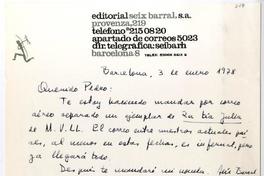 editorial seix barral, s.a.
provenza, 219
teléfono *215 08 20
apartado de correos 5023
dir. telegráfica: seibarh
barcelona 8
Barcelona, 3 de enero 1978
Querido Pedro:
Te estoy haciendo mandar por correo
aéreo separado un ejemplar de La tía Julia
de M.V.LL. El correo entre nuestros actuales paí
ses, al menos en estas fechas, es infernal, pero
ya llegará todo.
Después te mandaré un novela,